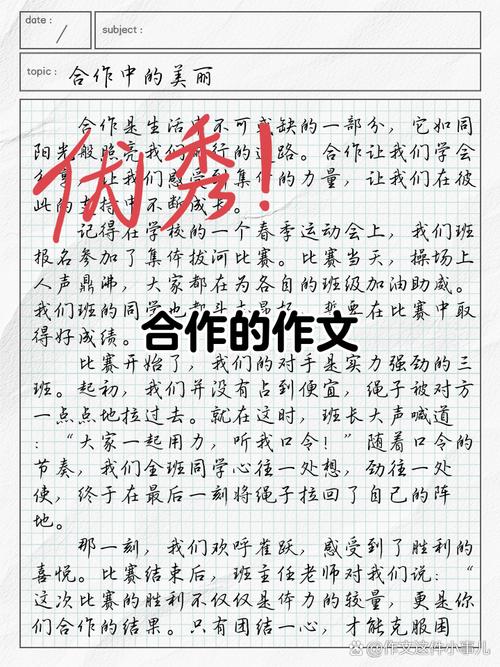 date :
subject :
topic : 合作中的美丽
合作是生活中不可或缺的一部分，它如同
阳光般照亮我们前行的道路。合作让我们学会
让我们感受到集体的力量，让我们在彼
此的支持中不断成长。
优秀！
记得在学校的一个春季运动会上，我们班
报名参加了集体拔河比赛。比赛当天，操场上
人声鼎沸，大家都在为各自的班级加油助威。
我们班的同学也都斗志昂扬，誓要在比赛中取
得好成绩。
合作的作文
比赛开始了，我们的对手是实力强劲的三
班。起初，我们并没有占到便宜，绳子被对方
一点点地拉过去。就在这时，班长大声喊道
：“大家一起用力，听我口令！”随着口令的
节奏，我们全班同学心往一处想，劲往一处
使，终于在最后一刻将绳子拉回了自己的阵
地。
那一刻，我们欢呼雀跃，感受到了胜利的
喜悦。比赛结束后，班主任老师对我们说：“
这次比赛的胜利不仅仅是体力的较量，更是你
们合作的结果。只有团结一心，才能克服困
作文这件小事儿